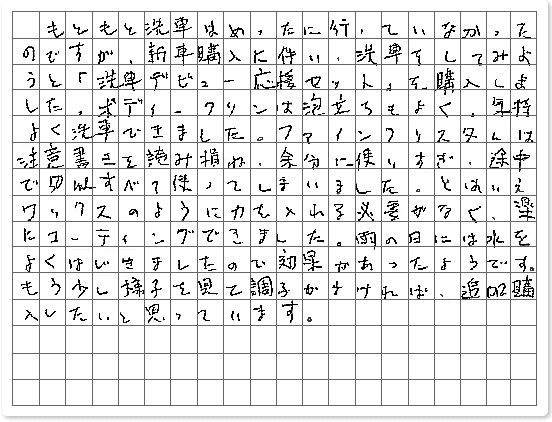 もともと洗車はめったに行っていなかった
のですが、新車購入に伴い、洗車をしてみよ
うと「洗車デビュー応援セット」を購入しま
した。ボディークリンは泡立ちもよく、気持
よく洗車できました。ファインクリスタルは
注意書きを読み損ね、余分に使いすぎ、途中
で切らすべて使ってしまいました。とはいえ
ワックスのように力を入れる必要がなく、楽
にコーティングできました。雨の日には水を
よくはじきましたので効果があったようです。
もう少し様子を見て調子がよければ、追加購
入したいと思っています。